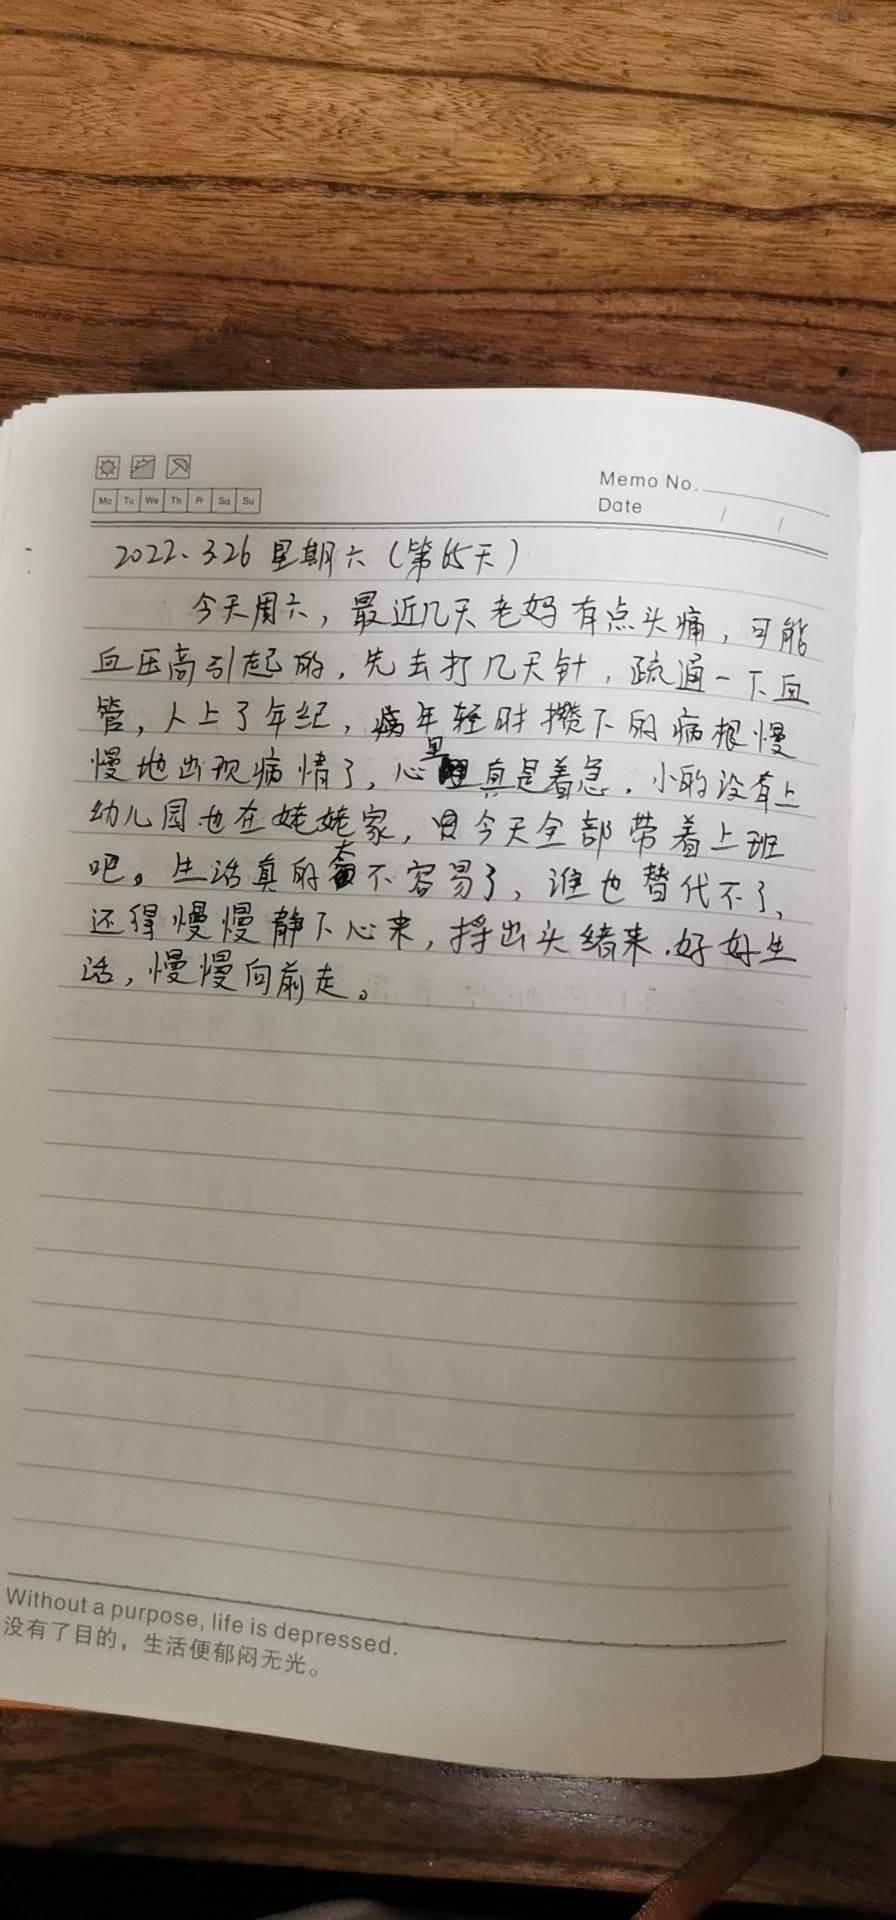 Mo Tu We Th Fr Sa Su
Memo No.
Date / /
2022.3.26 星期六（第65天）
今天周六，最近几天老妈有点头痛，可能
血压高引起的，先去打几天针，疏通一下血
管，人上了年纪，年轻时攒下的病根慢
慢地出现病情了，心里真是着急，小的没有上
幼儿园也在姥姥家，今天全部带着上班
吧。生活真的太不容易了，谁也替代不了，
还得慢慢静下心来，捋出头绪来，好好生
活，慢慢向前走。
Without a purpose, life is depressed.
没有了目的，生活便郁闷无光。